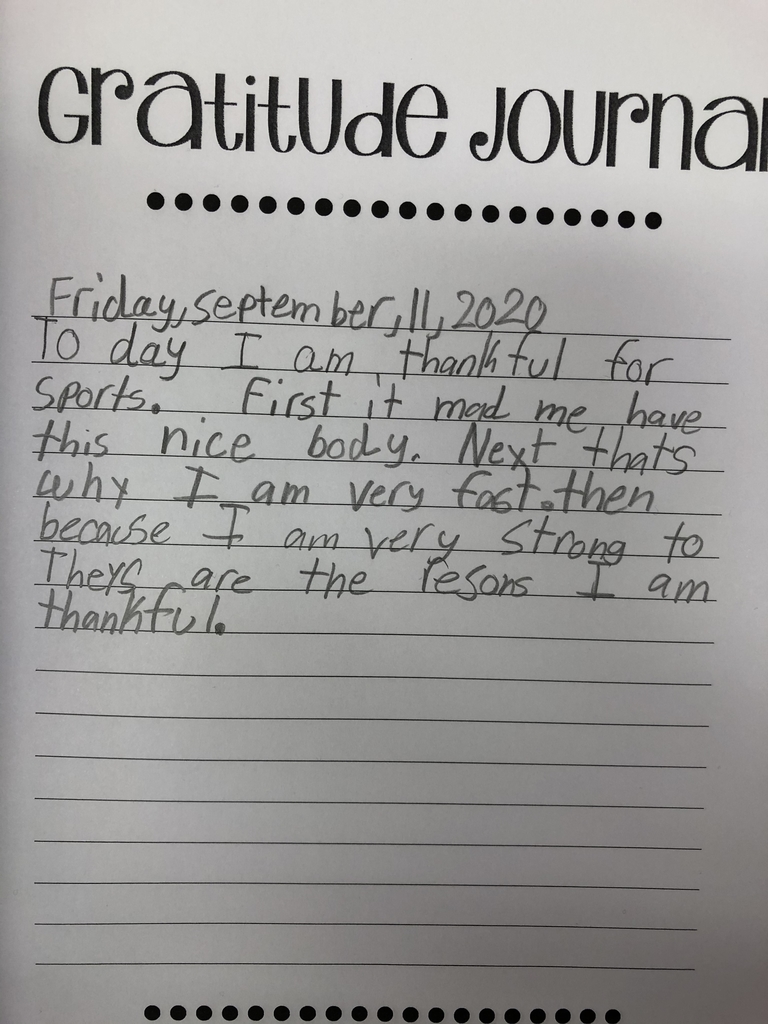 Gratitude Journal
Friday, september, 11, 2020
To day I am thankful for
sports. First it mad me have
this nice body. Next thats
why I am very fast. then
because I am very strong to
Theys are the resons I am
thankful.